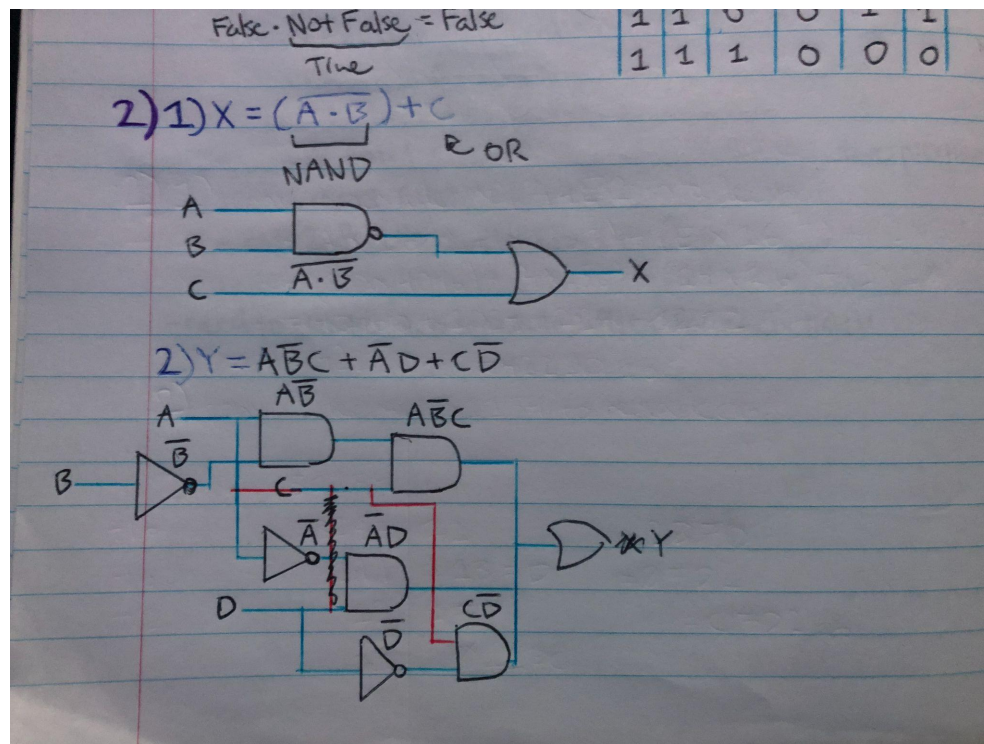 False · Not False = False
True
1 1 0 0 1 1
1 1 1 0 0 0
2) 1) X = (A̅·̅B̅) + C
NAND
OR
A
B
A̅·̅B̅
C
X
2) Y = AB̅C + A̅D + CD̅
AB̅
A
AB̅C
B̅
B
C
A̅
A̅D
Y
D
CD̅
D̅